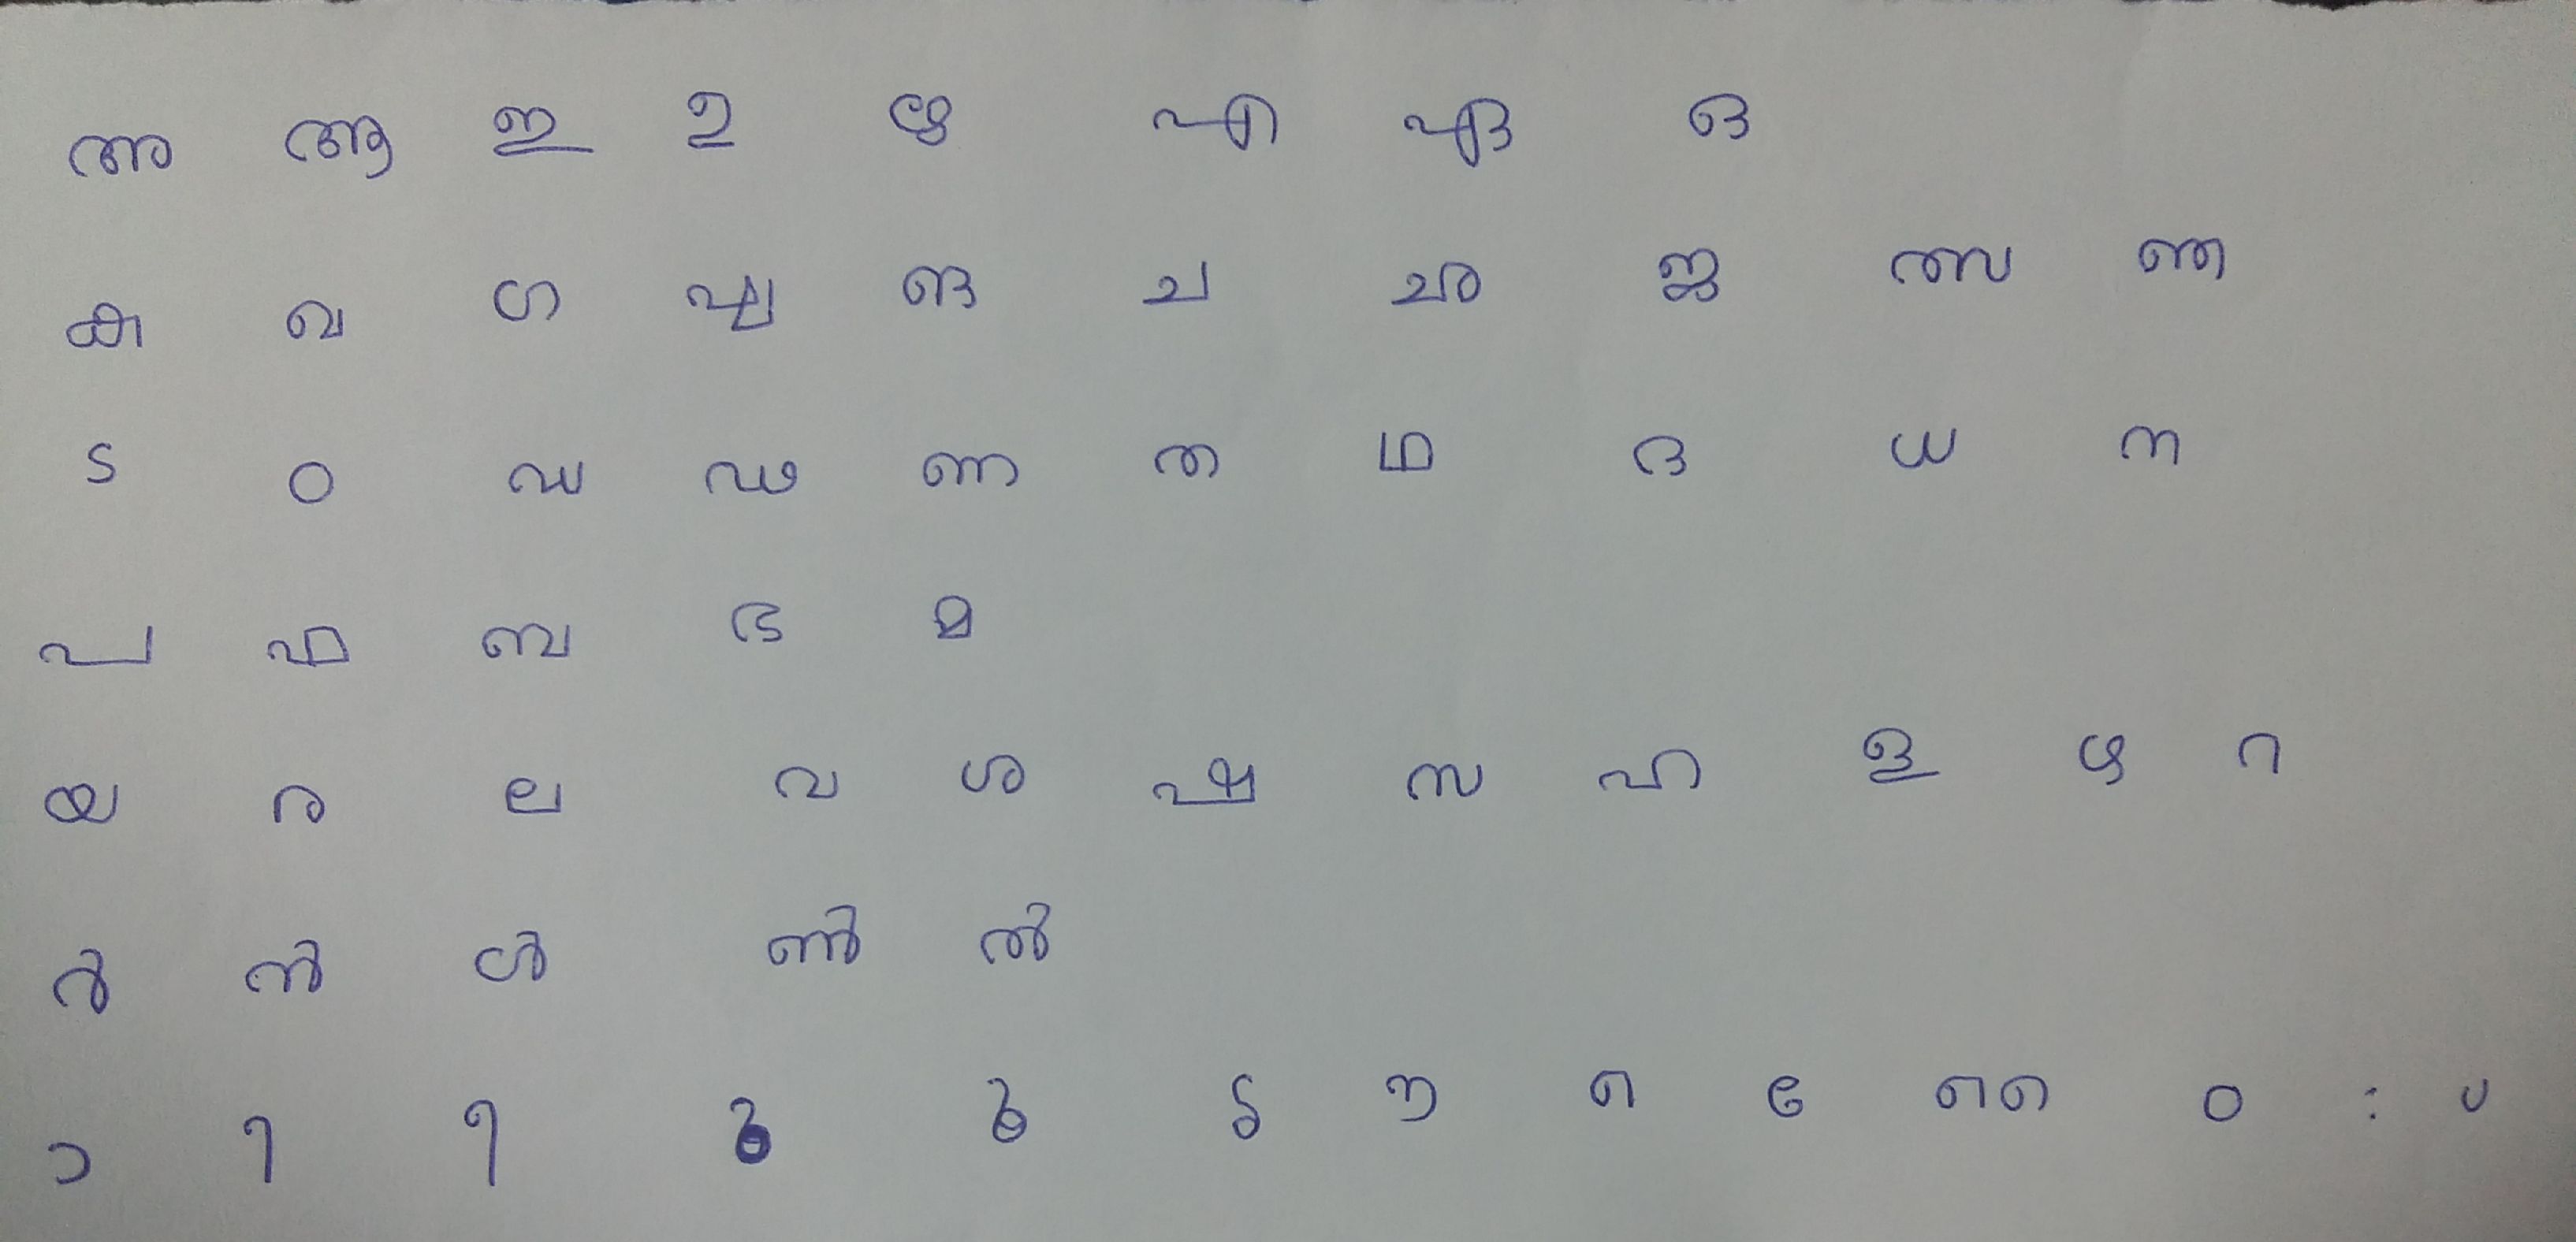 അ ആ ഇ ഉ ഋ എ ഏ ഒ
ക ഖ ഗ ഘ ങ ച ഛ ജ ഝ ഞ
ട ഠ ഡ ഢ ണ ത ഥ ദ ധ ന
പ ഫ ബ ഭ മ
യ ര ല വ ശ ഷ സ ഹ ള ഴ റ
ർ ൻ ൾ ൺ ൽ
ാ ി ീ ു ൂ ൃ ്വ െ േ ൈ ം ഃ ്